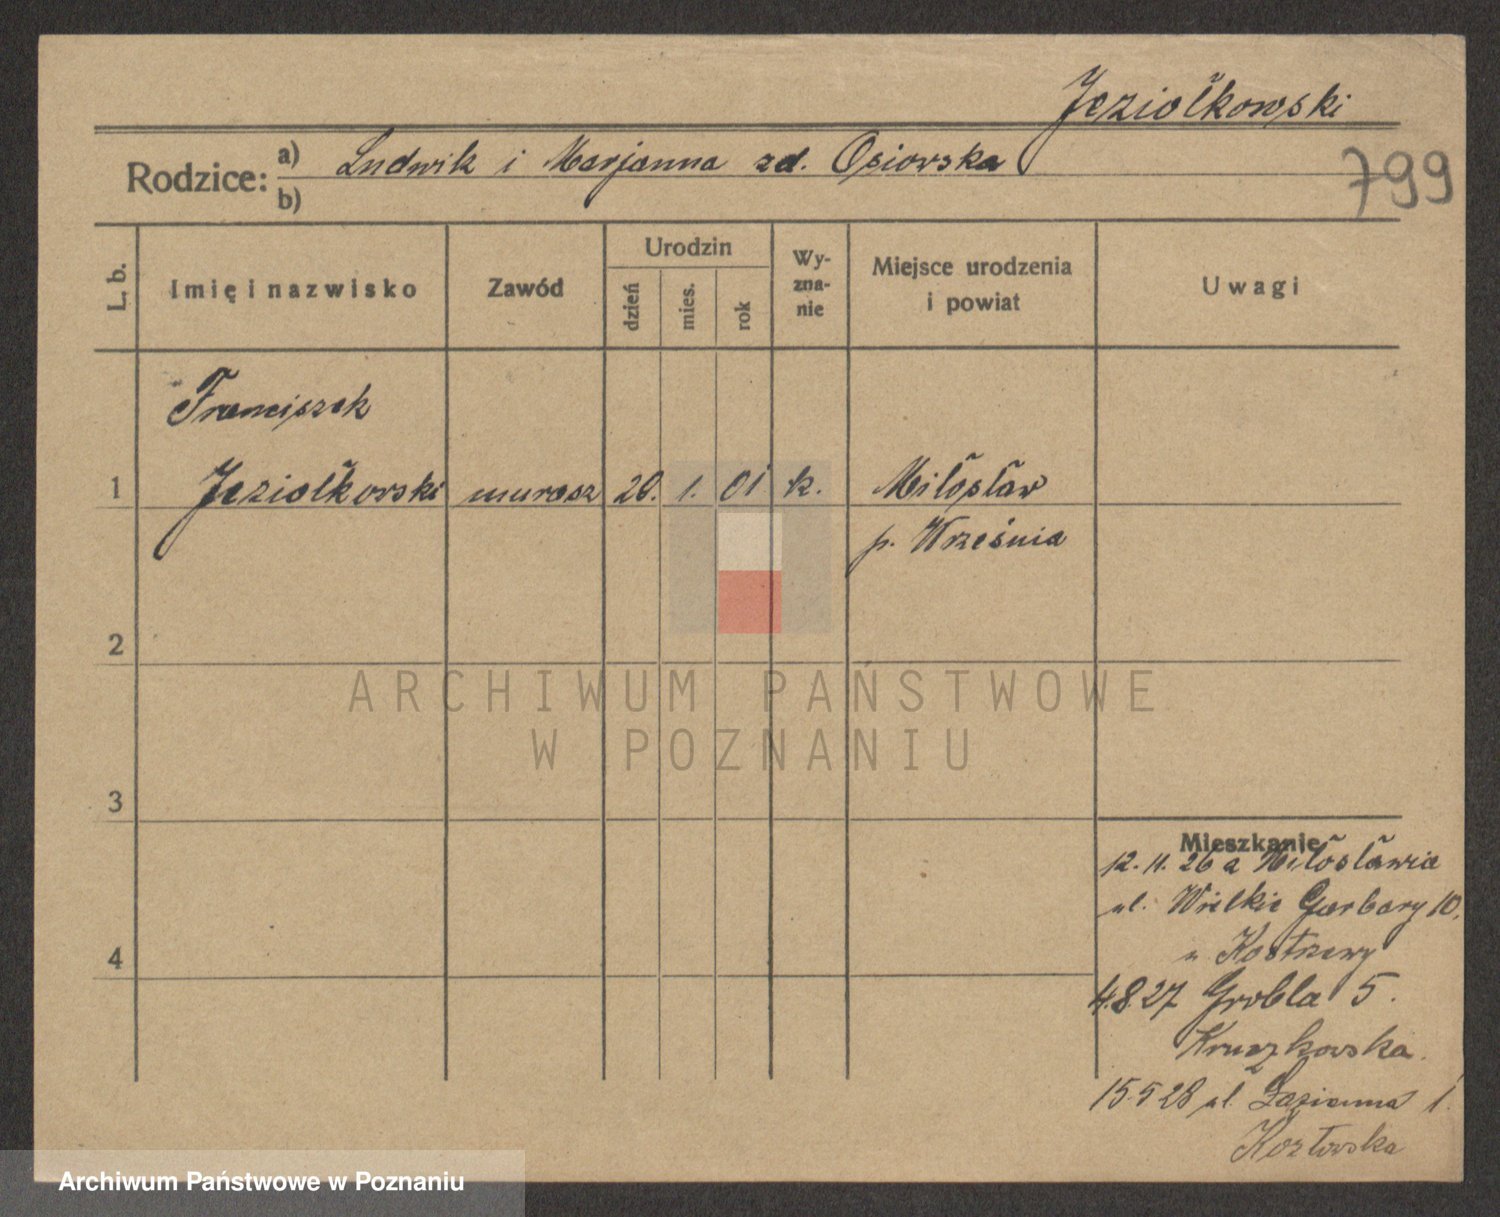 Jeziołkowski
Rodzice: a) Ludwik i Marjanna zd. Osiowska
b)
799
L. b.
Imię i nazwisko
Zawód
Urodzin
dzień
mies.
rok
Wy-
zna-
nie
Miejsce urodzenia
i powiat
Uwagi
Franciszek
1 Jeziołkowski murarz 20. 1. 01 k. Miłosław
p. Września
2
3
4
Mieszkanie
12. 11. 26 a Miłosławia
ul. Wielkie Garbary 10.
u Kostrzewy
4.8.27 Grobla 5.
Kruszkowska.
15.5 28 ul. Łazienna 1.
Kozłowska
ARCHIWUM PAŃSTWOWE
W POZNANIU
Archiwum Państwowe w Poznaniu